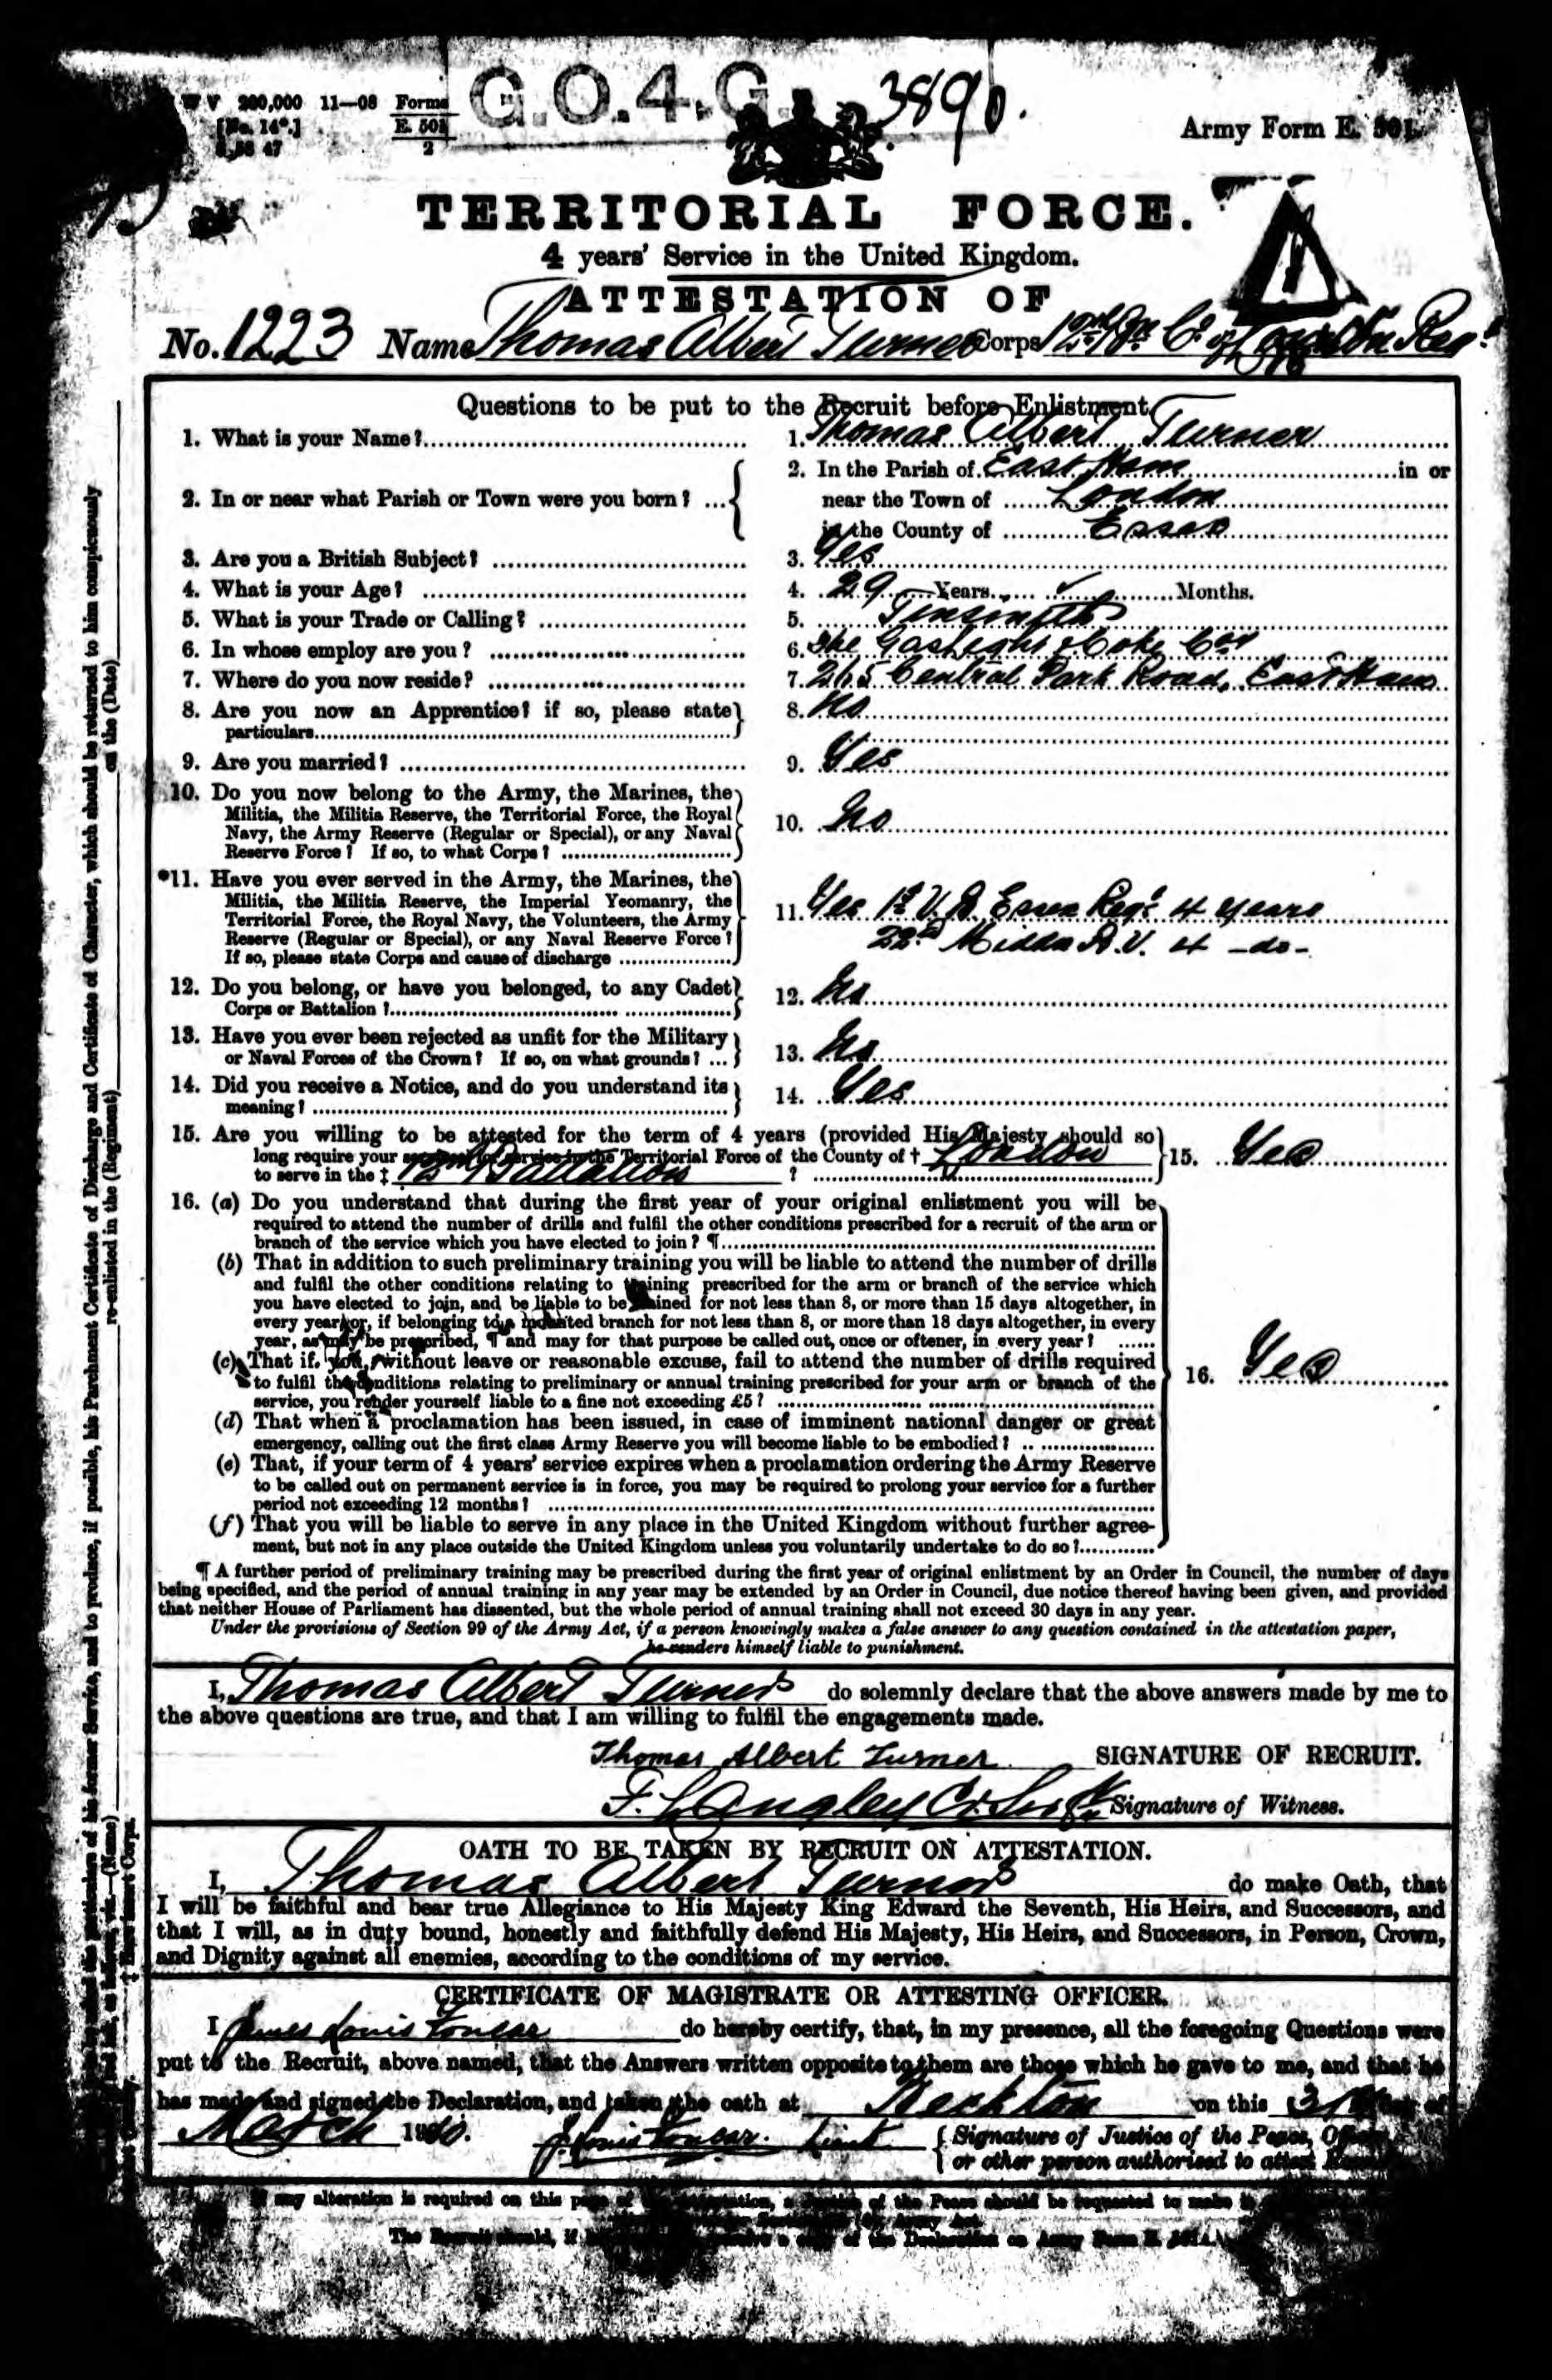 G.O.4.G. 3890.
W V 200,000 11—08 Forms
E. 501
2
Army Form E. 501.
TERRITORIAL FORCE.
4 years' Service in the United Kingdom.
ATTESTATION OF
No. 1223 Name Thomas Albert Turner Corps
Questions to be put to the Recruit before Enlistment.
1. What is your Name? 1. Thomas Albert Turner
2. In or near what Parish or Town were you born? ... 2. In the Parish of East Ham in or
near the Town of London
in the County of Essex
3. Are you a British Subject? 3. Yes
4. What is your Age? 4. 29 Years Months.
5. What is your Trade or Calling? 5. Tinsmith
6. In whose employ are you? 6. The Gaslight & Coke Coy
7. Where do you now reside? 7. 265 Central Park Road, East Ham
8. Are you now an Apprentice? if so, please state 8. No
particulars
9. Are you married? 9. Yes
10. Do you now belong to the Army, the Marines, the
Militia, the Militia Reserve, the Territorial Force, the Royal
Navy, the Army Reserve (Regular or Special), or any Naval
Reserve Force? If so, to what Corps? 10. No
*11. Have you ever served in the Army, the Marines, the
Militia, the Militia Reserve, the Imperial Yeomanry, the
Territorial Force, the Royal Navy, the Volunteers, the Army
Reserve (Regular or Special), or any Naval Reserve Force?
If so, please state Corps and cause of discharge
11. Yes 1st V.B. Essex Regt 4 years
22nd Middx R.V. 4 -do-
12. Do you belong, or have you belonged, to any Cadet
Corps or Battalion? 12. No
13. Have you ever been rejected as unfit for the Military
or Naval Forces of the Crown? If so, on what grounds? ... 13. No
14. Did you receive a Notice, and do you understand its
meaning? 14. Yes
15. Are you willing to be attested for the term of 4 years (provided His Majesty should so
long require your services) for service in the Territorial Force of the County of † London
to serve in the ‡ 12th Battalion ? 15. Yes
16. (a) Do you understand that during the first year of your original enlistment you will be
required to attend the number of drills and fulfil the other conditions prescribed for a recruit of the arm or
branch of the service which you have elected to join? ¶
(b) That in addition to such preliminary training you will be liable to attend the number of drills
and fulfil the other conditions relating to training prescribed for the arm or branch of the service which
you have elected to join, and be liable to be trained for not less than 8, or more than 15 days altogether, in
every year, or, if belonging to a mounted branch for not less than 8, or more than 18 days altogether, in every
year, as may be prescribed, ¶ and may for that purpose be called out, once or oftener, in every year?
(c) That if you, without leave or reasonable excuse, fail to attend the number of drills required
to fulfil the conditions relating to preliminary or annual training prescribed for your arm or branch of the
service, you render yourself liable to a fine not exceeding £5?
16. Yes
(d) That when a proclamation has been issued, in case of imminent national danger or great
emergency, calling out the first class Army Reserve you will become liable to be embodied?
(e) That, if your term of 4 years' service expires when a proclamation ordering the Army Reserve
to be called out on permanent service is in force, you may be required to prolong your service for a further
period not exceeding 12 months?
(f) That you will be liable to serve in any place in the United Kingdom without further agree-
ment, but not in any place outside the United Kingdom unless you voluntarily undertake to do so?
¶ A further period of preliminary training may be prescribed during the first year of original enlistment by an Order in Council, the number of days
being specified, and the period of annual training in any year may be extended by an Order in Council, due notice thereof having been given, and provided
that neither House of Parliament has dissented, but the whole period of annual training shall not exceed 30 days in any year.
Under the provisions of Section 99 of the Army Act, if a person knowingly makes a false answer to any question contained in the attestation paper,
he renders himself liable to punishment.
I, Thomas Albert Turner do solemnly declare that the above answers made by me to
the above questions are true, and that I am willing to fulfil the engagements made.
Thomas Albert Turner SIGNATURE OF RECRUIT.
F. Langley Signature of Witness.
OATH TO BE TAKEN BY RECRUIT ON ATTESTATION.
I, Thomas Albert Turner do make Oath, that
I will be faithful and bear true Allegiance to His Majesty King Edward the Seventh, His Heirs, and Successors, and
that I will, as in duty bound, honestly and faithfully defend His Majesty, His Heirs, and Successors, in Person, Crown,
and Dignity against all enemies, according to the conditions of my service.
CERTIFICATE OF MAGISTRATE OR ATTESTING OFFICER.
I James Louis do hereby certify, that, in my presence, all the foregoing Questions were
put to the Recruit, above named, that the Answers written opposite to them are those which he gave to me, and that he
has made and signed the Declaration, and taken the oath at Beckton on this 31st day of
March 1910. Lieut. Signature of Justice of the Peace, Officer
or other person authorised to attest
any alteration is required on this page of the Attestation, a Justice of the Peace should be requested to make it
The Recruit should, if of the Declaration on Army Form E. 501A.
his former Service, and to produce, if possible, his Parchment Certificate of Discharge and Certificate of Character, which should be returned to him conspicuously
re-enlisted in the (Regiment) on the (Date)